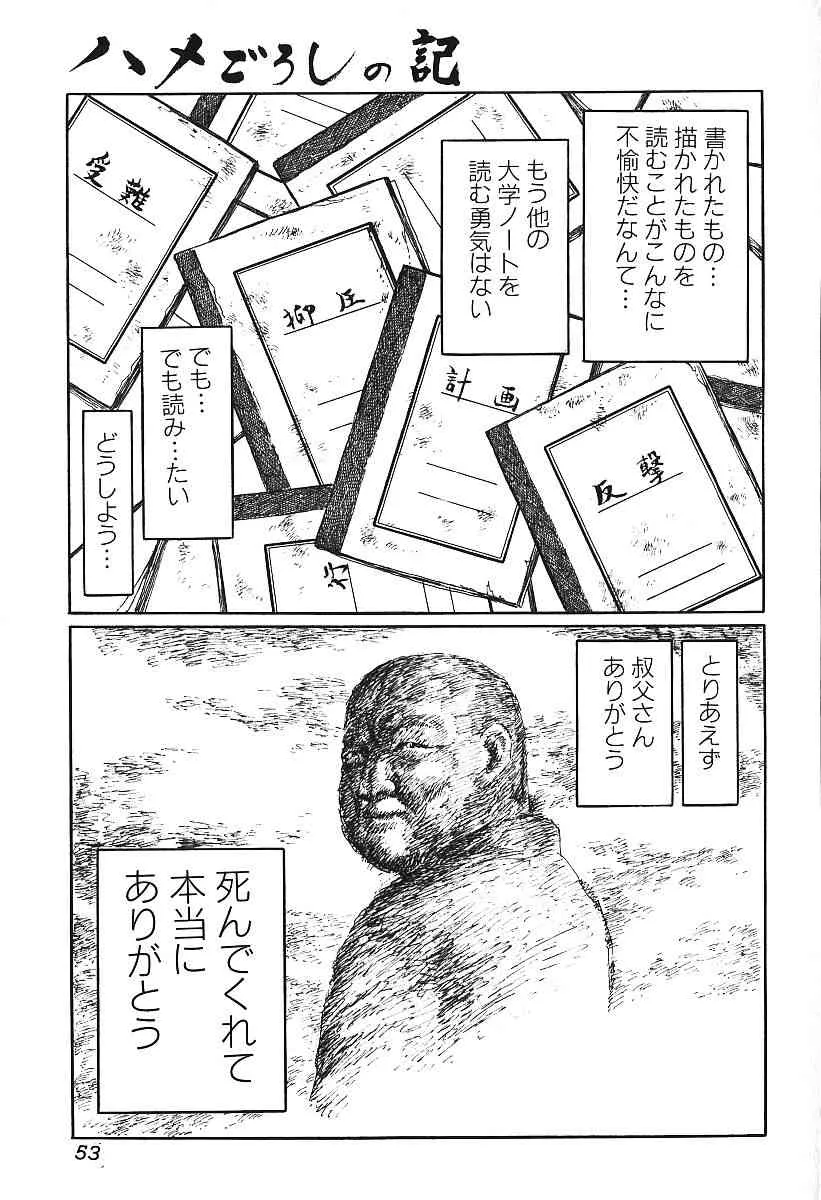 ハメごろしの記
書かれたもの…
描かれたものを
読むことがこんなに
不愉快だなんて…
もう他の
大学ノートを
読む勇気はない
でも…
でも読み…たい
どうしよう…
受難
抑圧
計画
反撃
とりあえず
叔父さん
ありがとう
死んでくれて
本当に
ありがとう
53